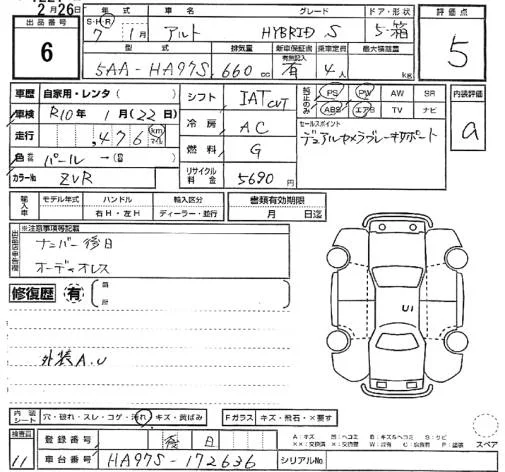 2月26日
出品番号
6
年式 車名 グレード ドア・形状
S・H・R 7年 1月 アルト HYBRID S 5・箱
型式 排気量 新車保証書 乗車定員 最大積載量
有無記入
5AA-HA97S 660cc 有 4人 kg
評価点
5
車歴 自家用・レンタ( )
車検 R10年 1月(22日)
走行 ,476 km マイル
色 パール →( )
カラーNo ZVR
シフト IAT CVT
冷房 AC
燃料 G
リサイクル料金 5690円
純正のみ PS PW AW SR
ABS エアB TV ナビ
セールスポイント
デュアルカメラブレーキサポート
内装評価
a
輸入車 モデル年式 ハンドル 輸入区分
右H・左H ディーラー・並行
書類有効期限
月 日迄
※注意事項等記載
ナンバー後日
オーディオレス
修復歴 有
外装A.U
U1
内装シート 穴・破れ・スレ・コゲ・汚れ・キズ・黄ばみ
Fガラス キズ・飛石・×要す
スペア
検査員
11
登録番号 後日
車台番号 HA97S-172636
シリアルNo